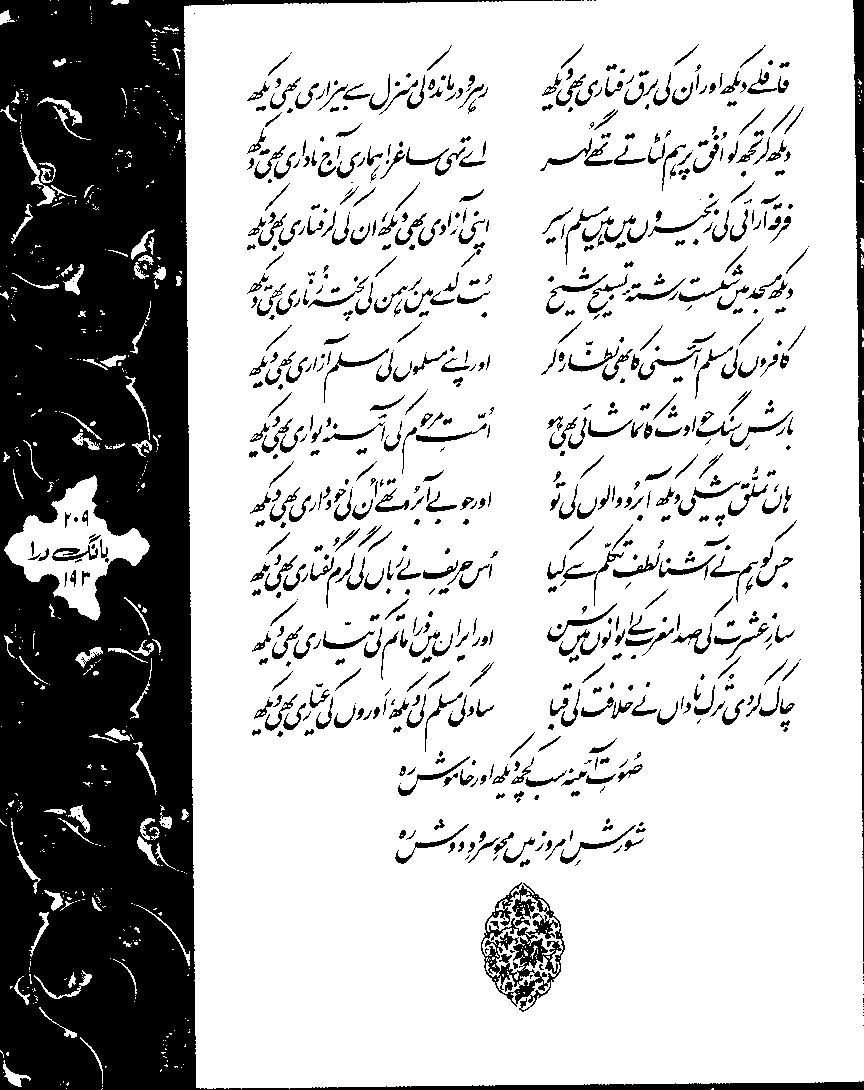 قافلے دیکھ اور اُن کی برق رفتاری بھی دیکھ رہروِ درماندہ کی منزل سے بیزاری بھی دیکھ
دیکھ کر تجھ کو اُفق پر ہم لُٹاتے تھے گُہر اے تہی ساغر! ہماری آج ناداری بھی دیکھ
فرقہ آرائی کی زنجیروں میں ہیں مسلم اسیر اپنی آزادی بھی دیکھ، ان کی گرفتاری بھی دیکھ
دیکھ مسجد میں شکستِ رشتۂ تسبیحِ شیخ بُت کدے میں برہمن کی پختہ زُنّاری بھی دیکھ
کافروں کی مسلم آئینی کا بھی نظّارہ کر اور اپنے مسلموں کی مسلم آزاری بھی دیکھ
بارشِ سنگِ حوادث کا تماشائی بھی ہو اُمّتِ مرحوم کی آئینہ دیواری بھی دیکھ
ہاں، تملُّق پیشگی دیکھ آبرو والوں کی تُو اور جو بے آبرو تھے، اُن کی خود داری بھی دیکھ
جس کو ہم نے آشنا لُطفِ تکلّم سے کِیا اُس حریفِ بے زباں کی گرم گُفتاری بھی دیکھ
سازِ عشرت کی صدا مغرب کے ایوانوں میں سُن اور ایراں میں ذرا ماتم کی تیّاری بھی دیکھ
چاک کر دی تُرکِ ناداں نے خلافت کی قبا سادگی مسلم کی دیکھ، اَوروں کی عیّاری بھی دیکھ
صُورتِ آئینہ سب کچھ دیکھ اور خاموش رہ
شورشِ امروز میں محوِ سرودِ دوش رہ
۲۰۹
بانگِ درا
۱۹۳